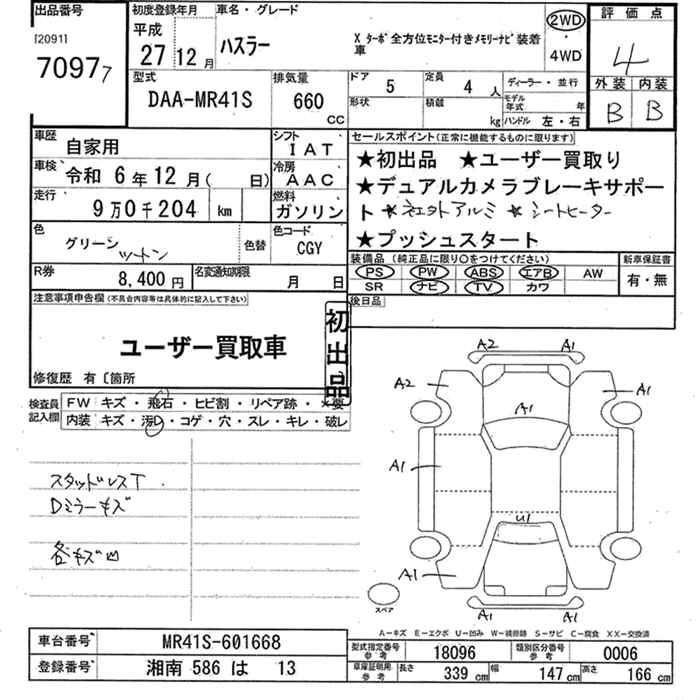 出品番号
初度登録年月
車名・グレード
2WD
評価点
[20911
平成
7097₇
27
12月
ハスラー
X ターボ 全方位モニター付きメモリーナビ装着車
4WD
4
型式
排気量
ドア
5
定員
4人
ディーラー・並行
外装
内装
DAA-MR41S
660 CC
形状
積載
kg
モデル年式
年
ハンドル 左・右
B
B
車歴
自家用
シフト
IAT
セールスポイント(正常に機能するものに限ります)
車検
令和 6年 12月( 日)
冷房
AAC
★初出品 ★ユーザー買取り
★デュアルカメラブレーキサポー
走行
9万0千204 km
燃料
ガソリン
ト ★社外アルミ ★シートヒーター
色
グリーン ツートン
色替
色コード
CGY
★プッシュスタート
装備品(純正品に限り〇をつけてください)
新車保証書
R券
8,400円
名変通知期限
月 日
PS PW ABS エアB AW
SR ナビ TV カワ
有・無
注意事項申告欄(不具合内容等は具体的に記入して下さい)
初出品
後日品
ユーザー買取車
修復歴 有〔箇所
検査員記入欄
FW キズ・飛石・ヒビ割・リペア跡・×要
内装 キズ・汚れ・コゲ・穴・スレ・キレ・破レ
A2
A1
A2
A1
A1
A1
スタッドレスT
Dミラーキズ
U1
各キズ凹
A1
スペア
A1
A1
A-キズ E-エクボ U-凹み W-補修跡 S-サビ C-腐食 XX-交換済
車台番号
MR41S-601668
型式指定番号 参考
18096
類別区分番号 参考
0006
登録番号
湘南 586 は 13
車庫証明用 参考
長さ
339 cm
幅
147 cm
高さ
166 cm